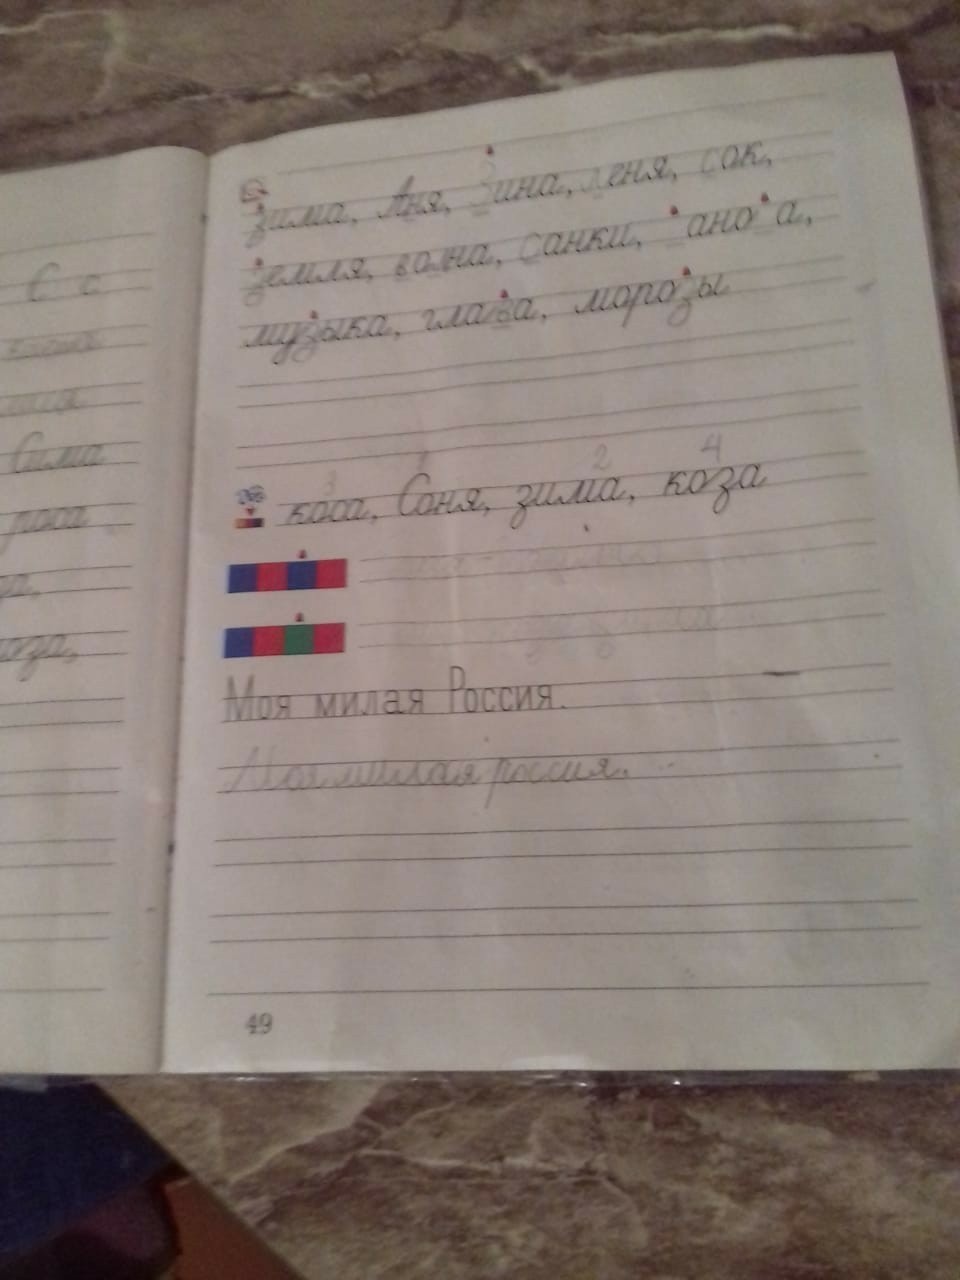 С с
Сима
роса
оза,
зима, Аня, Зина, Леня, сок,
земля, волна, санки, ано а,
музыка, глава, морозы
3 1 2 4
коса, Соня, зима, коза
Моя милая Россия.
Моя милая россия.
49